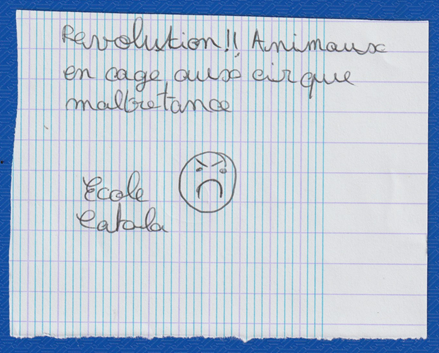 Revolution!! Animaux
en cage aux cirque
maltretance
Ecole
Catala